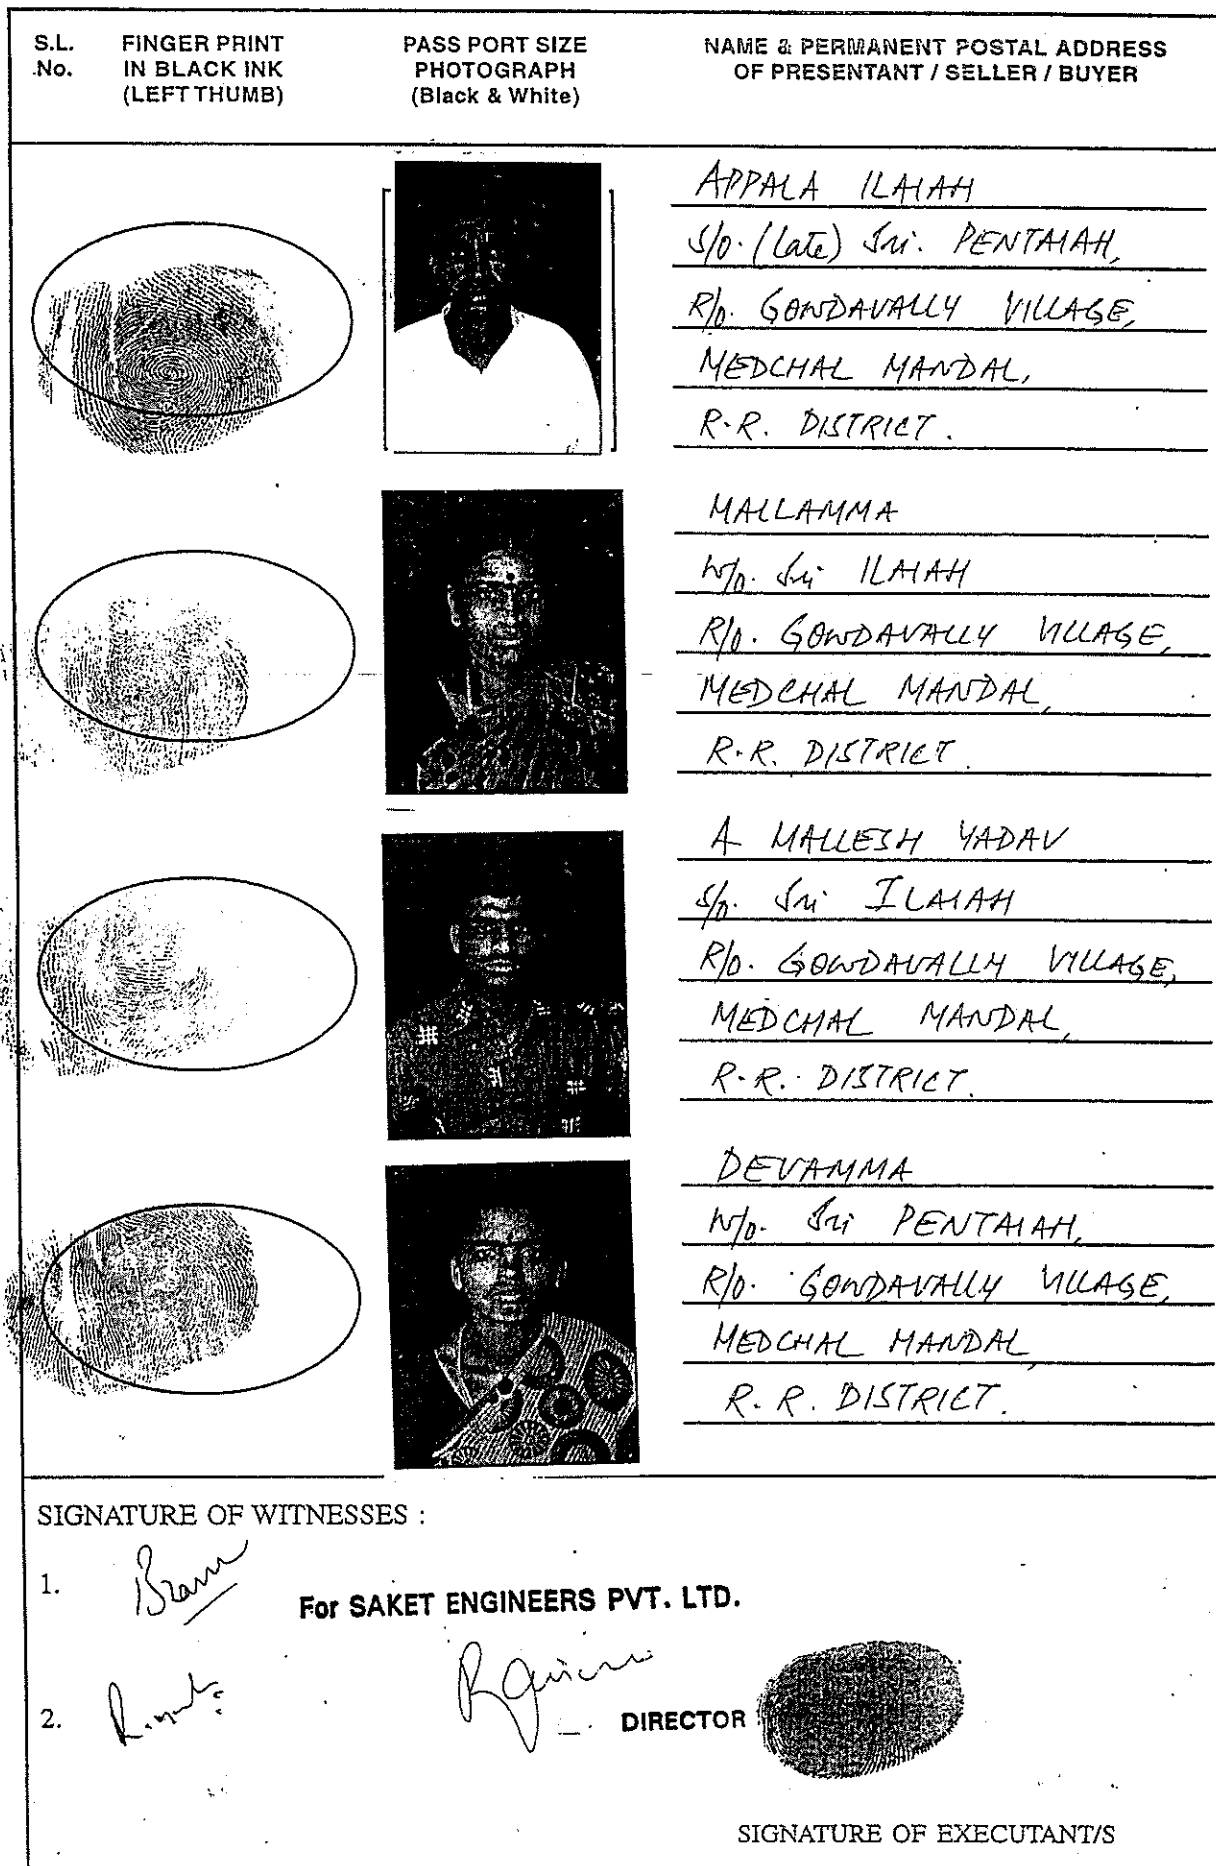 S.L. No.
FINGER PRINT IN BLACK INK (LEFT THUMB)
PASS PORT SIZE PHOTOGRAPH (Black & White)
NAME & PERMANENT POSTAL ADDRESS OF PRESENTANT / SELLER / BUYER
APPALA ILAIAH
S/o. (Late) Sri. PENTAIAH,
R/o. GOWDAVALLY VILLAGE,
MEDCHAL MANDAL,
R.R. DISTRICT.
MALLAMMA
W/o. Sri ILAIAH
R/o. GOWDAVALLY VILLAGE,
MEDCHAL MANDAL,
R.R. DISTRICT.
A MALLESH YADAV
S/o. Sri ILAIAH
R/o. GOWDAVALLY VILLAGE,
MEDCHAL MANDAL,
R.R. DISTRICT.
DEVAMMA
W/o. Sri PENTAIAH,
R/o. GOWDAVALLY VILLAGE,
MEDCHAL MANDAL,
R.R. DISTRICT.
SIGNATURE OF WITNESSES :
1.
For SAKET ENGINEERS PVT. LTD.
2.
DIRECTOR
SIGNATURE OF EXECUTANT/S